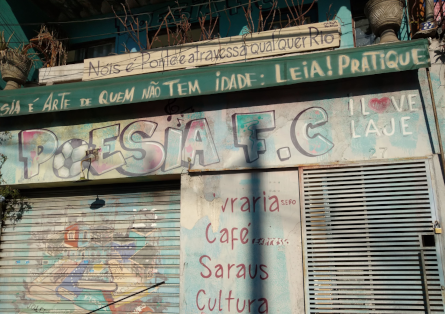 Nois é Ponte e atravessa qualquer Rio
sia é Arte de Quem não Tem idade: Leia! Pratique
POESIA F.C
I LOVE
LAJE
27
vraria
Café
Saraus
Cultura